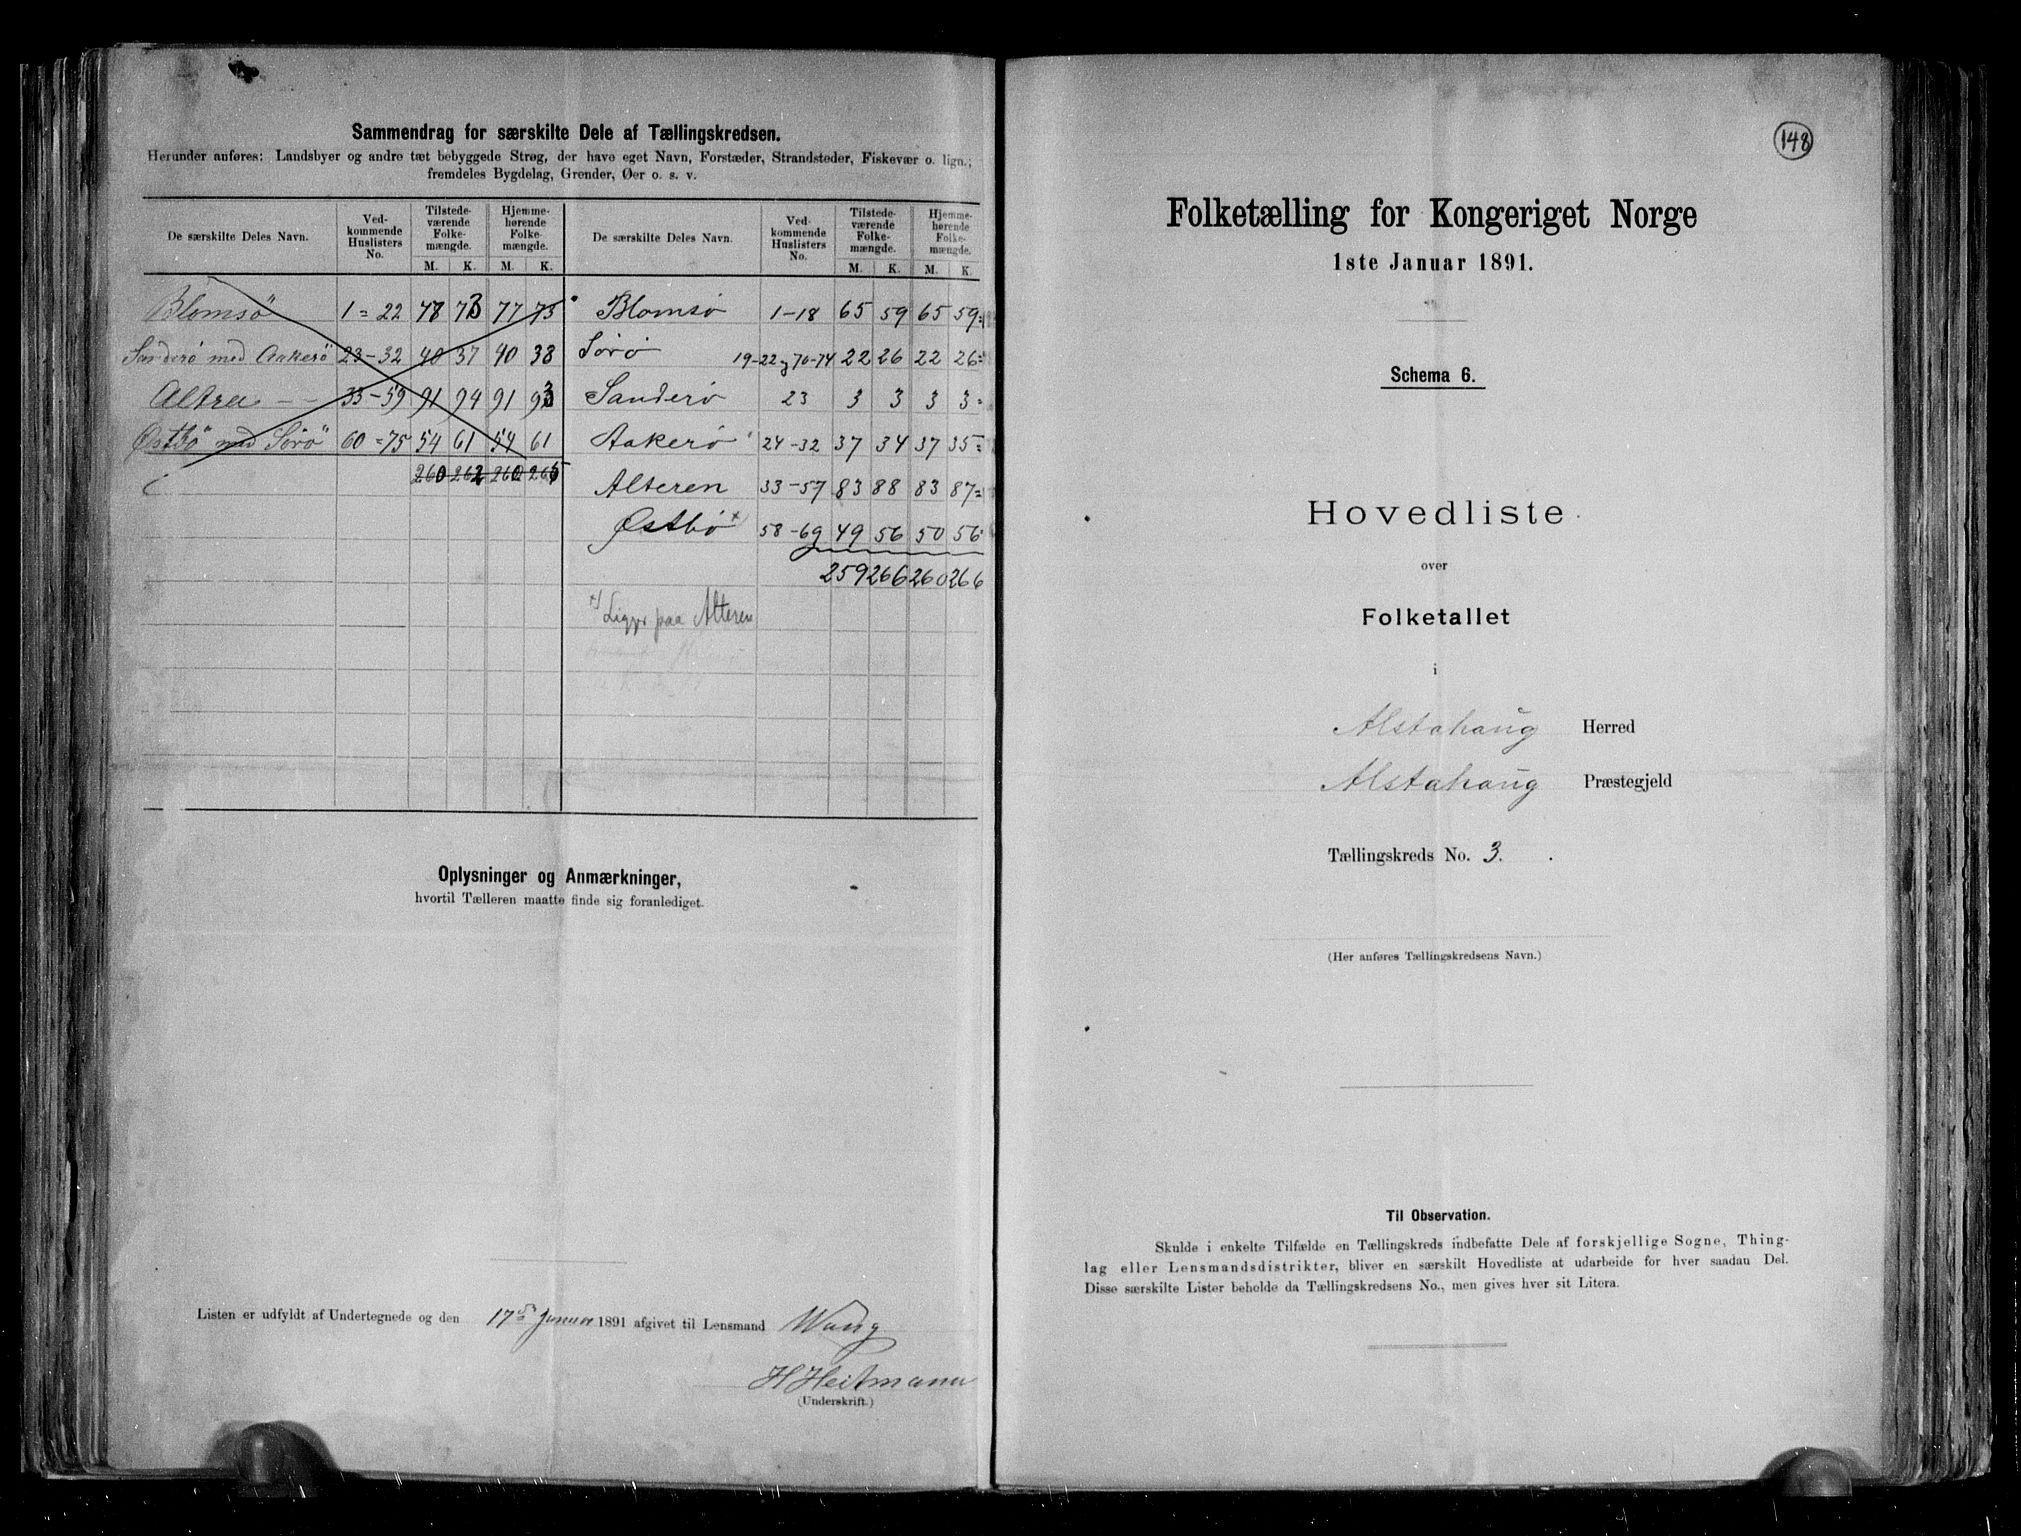 Sammendrag for særskilte Dele af Tællingskredsen.
Herunder anføres: Landsbyer og andre tæt bebyggede Strøg, der have eget Navn, Forstæder, Strandsteder, Fiskevær o. lign.;
fremdeles Bygdelag, Grender, Øer o. s. v.
De særskilte Deles Navn. Ved-kommende Huslisters No. Tilstede-værende Folke-mængde. Hjemme-hørende Folke-mængde. De særskilte Deles Navn. Ved-kommende Huslisters No. Tilstede-værende Folke-mængde. Hjemme-hørende Folke-mængde.
M. K. M. K. M. K. M. K.
Blomsö 1=22 78 73 77 75 Blomsø 1-18 65 59 65 59
Sanderö med Aakerö 23-32 40 37 40 38 Sørø 19-22 og 70-74 22 26 22 26
Altra 33-59 91 94 91 93 Sanderø 23 3 3 3 3
Østbö med Sörö 60=75 54 61 54 61 Aakerø 24-32 37 34 37 35
260 262 260 265 Alteren 33-57 83 88 83 87
Østbø x) 58-69 49 56 50 56
259 266 260 266
x) Ligger paa Alteren
Oplysninger og Anmærkninger,
hvortil Tælleren maatte finde sig foranlediget.
Listen er udfyldt af Undertegnede og den 17de Januar 1891 afgivet til Lensmand Wang
H Heitmann
(Underskrift.)
148
Folketælling for Kongeriget Norge
1ste Januar 1891.
Schema 6.
Hovedliste
over
Folketallet
i
Alstahaug Herred
Alstahaug Præstegjeld
Tællingskreds No. 3.
(Her anføres Tællingskredsens Navn.)
Til Observation.
Skulde i enkelte Tilfælde en Tællingskreds indbefatte Dele af forskjellige Sogne, Thing-
lag eller Lensmandsdistrikter, bliver en særskilt Hovedliste at udarbeide for hver saadan Del.
Disse særskilte Lister beholde da Tællingskredsens No., men gives hver sit Litera.